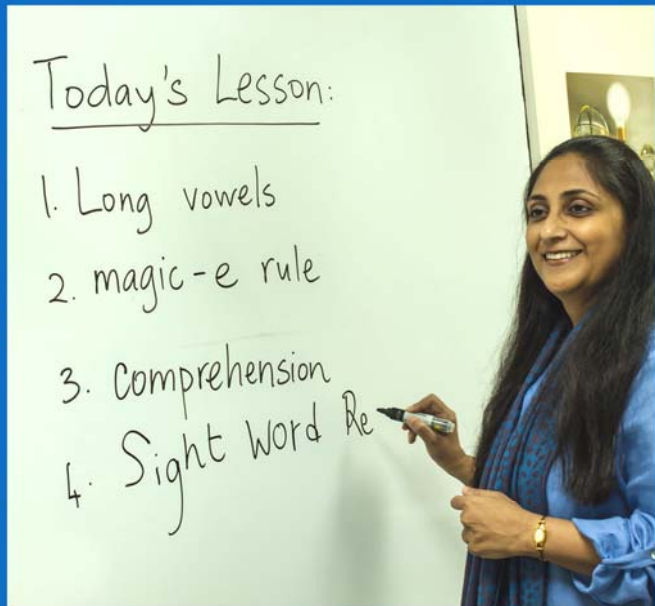 Today's Lesson:
1. Long vowels
2. magic-e rule
3. Comprehension
4. Sight Word Re